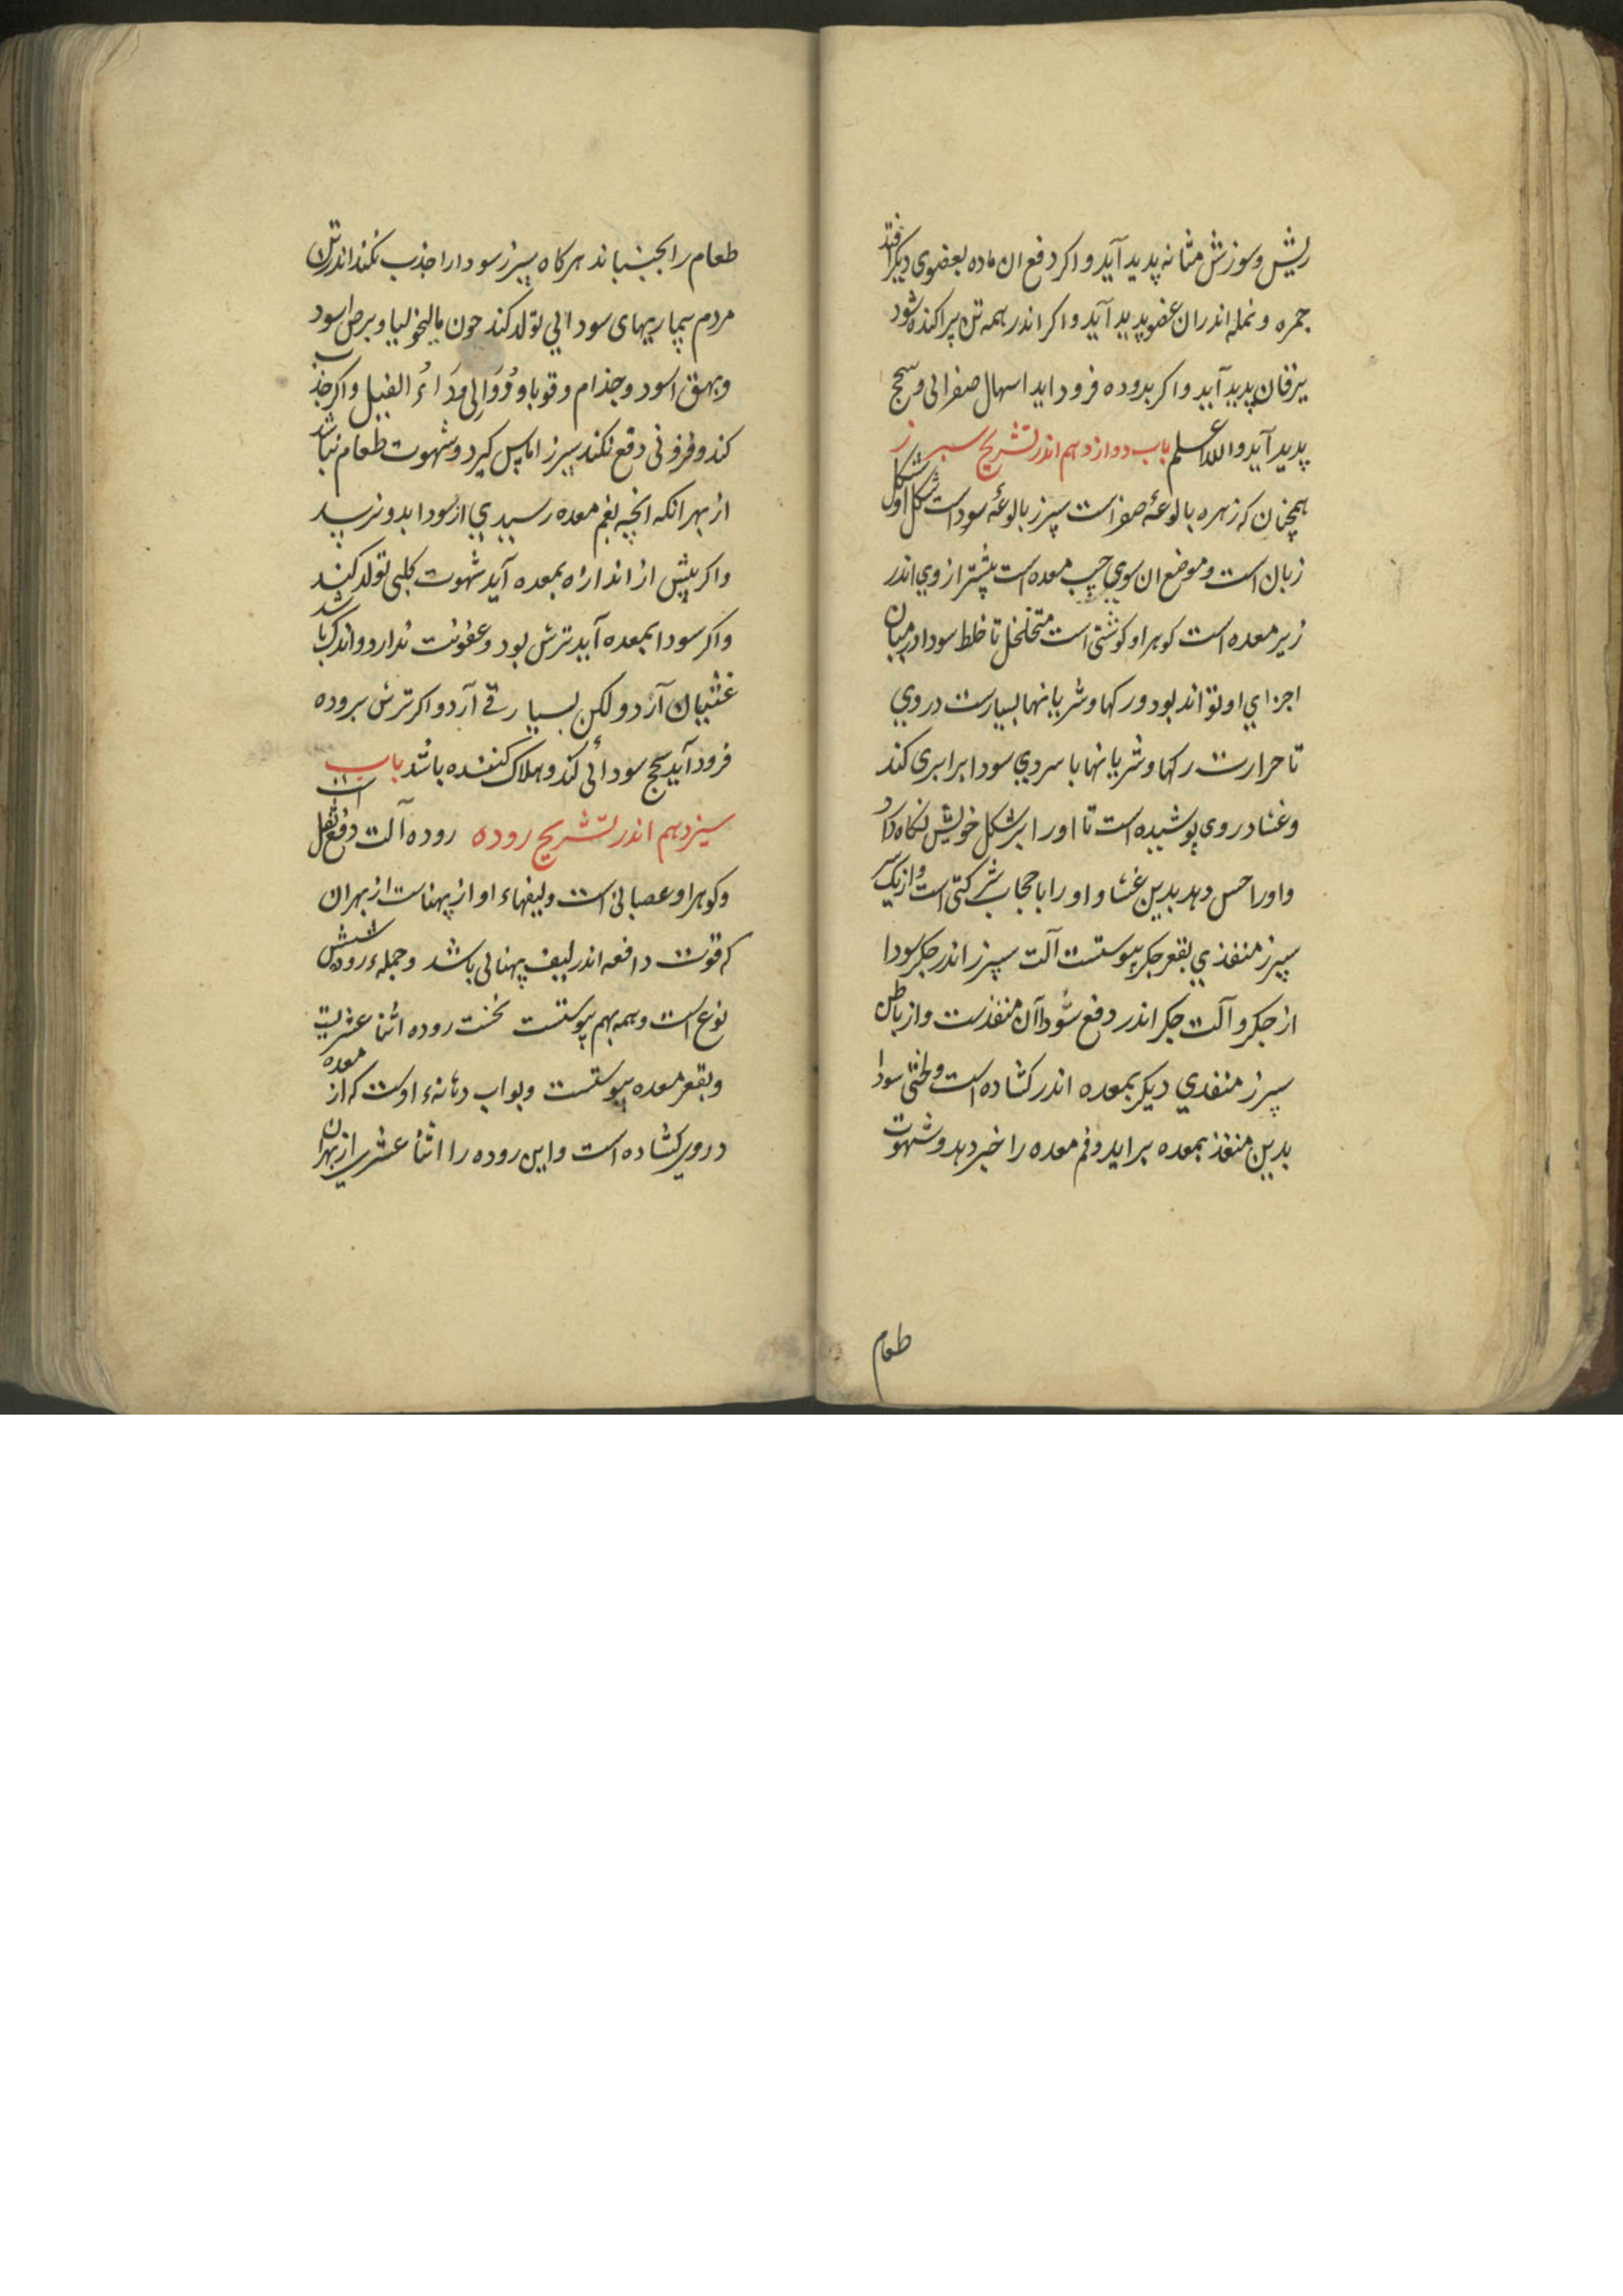 ریش و سوزش مثانه پدید آید و اکر دفع ان ماده بعضوی دیکر افتد
جمره و نمله اندران عضو پدید آید و اکر اندر همه تن پراکنده شود
یرقان پدید آید و اکر بروده فرود اید اسهال صفرائی و سحج
پدید آید والله اعلم باب دوازدهم اندر تشریح سپرز
همچنان که زهره بالوعهٔ صفراست سپرز بالوعهٔ سوداست شکل او شکل
زبان است و موضع ان سوی چپ معده است پیشتر از وی اندر
زیر معده است کوهر او کوشتی است متخلخل تا خلط سودا در میان
اجزای او تواند بود و رکها و شریانها بسیارست در وی
تا حرارت رکها و شریانها با سردی سودا برابری کند
و غشا در وی پوشیده است تا او را بر شکل خویش نکاه دارد
و او را حس دهد بدین غشا و او را با حجاب شرکتی است و از یک سر
سپرز منفذی بقعر جکر پیوستست آلت سپرز اندر جکر سودا
از جکر و آلت جکر اندر دفع سودا آن منفذست و از باطن
سپرز منفذی دیکر بمعده اندر کشاده است و لختی سودا
بدین منفذ بمعده براید و فم معده را خبر دهد و شهوت
طعام
طعام را بجنباند هرکاه سپرز سودا را جذب نکند اندر تن
مردم بیماریهای سودائی تولد کند چون مالیخولیا و برص اسود
و بهق اسود و جذام و قوبا و دوالی و داء الفیل و اکر جذب
کند و فزونی دفع نکند سپرز اماس کیرد و شهوت طعام نباشد
از بهر انکه انچه بفم معده رسیدی از سودا بدو نرسد
و اکر بیش از اندازه بمعده آید شهوت کلبی تولد کند
و اکر سودا بمعده آید ترش بود و عفونت ندارد و اندک باشد
غثیان آرد و لکن بسیار قی آرد و اکر ترش بروده
فرود آید سحج سودائی کند و هلاک کننده باشد باب
سیزدهم اندر تشریح روده روده آلت دفع ثفل است
و کوهر او عصبانی است و لیفهاء او از پهناست از بهر ان
که قوت دافعه اندر لیف پهنائی باشد و جمله روده شش
نوع است و همه بهم پیوستست نخست روده اثنا عشریست
و بقعر معده پیوستست و بواب دهانهء اوست که از معده
در وی کشاده است و این روده را اثنا عشری از بهر ان